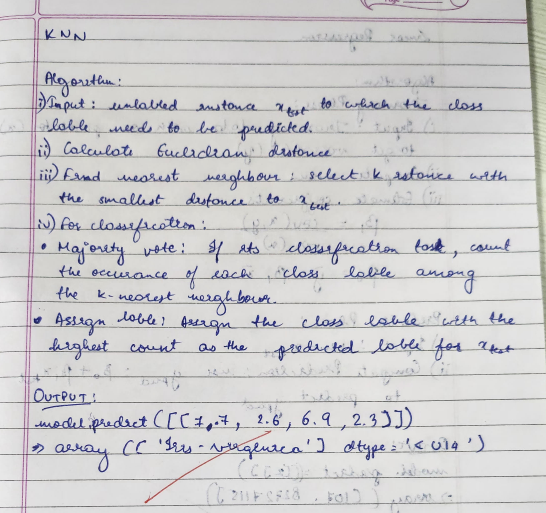 KNN
Algorithm:
i) Input: unlabled instance x_test to which the class
lable needs to be predicted.
ii) Calculate Euclidean distance
iii) Find nearest neighbour: select k istance with
the smallest distance to x_test.
iv) For classification:
• Majority vote: If its classification task, count
the occurance of each class lable among
the k-nearest neighbour.
• Assign lable: Assign the class lable with the
highest count as the predicted lable for x_test
OUTPUT:
model.predict([[7.7, 2.6, 6.9, 2.3]])
⇒ array (['Iris-virginica'] dtype='<U14')